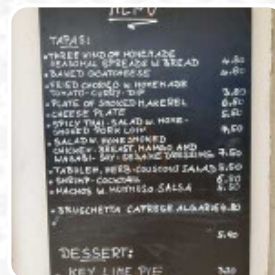 MENU
TAPAS:
THREE KIND OF HOMEMADE
SEASONAL SPREADS W BREAD 4.80
BAKED GOATCHEESE 4.80
FRIED CHORIZO W HOMEMADE
TOMATO-CURRY-DIP 3.80
PLATE OF SMOKED MAKEREL 6.80
CHEESE PLATE 5.80
SPICY THAI-SALAD W. HOME-
SMOKED PORK LOIN 9,50
SALAD W. HOMESMOKED
CHICKEN-BREAST, MANGO AND
WASABI-SOY-SESAME DRESSING 7.50
TABOULEH, HERB-COUSCOUS SALAD 5.50
SHRIMP-COCKTAIL 6.50
NACHOS W. SALSA 5.50
BRUSCHETTA CAPRESE 4.80
5.40
DESSERT:
KEY LIME PIE 3.20